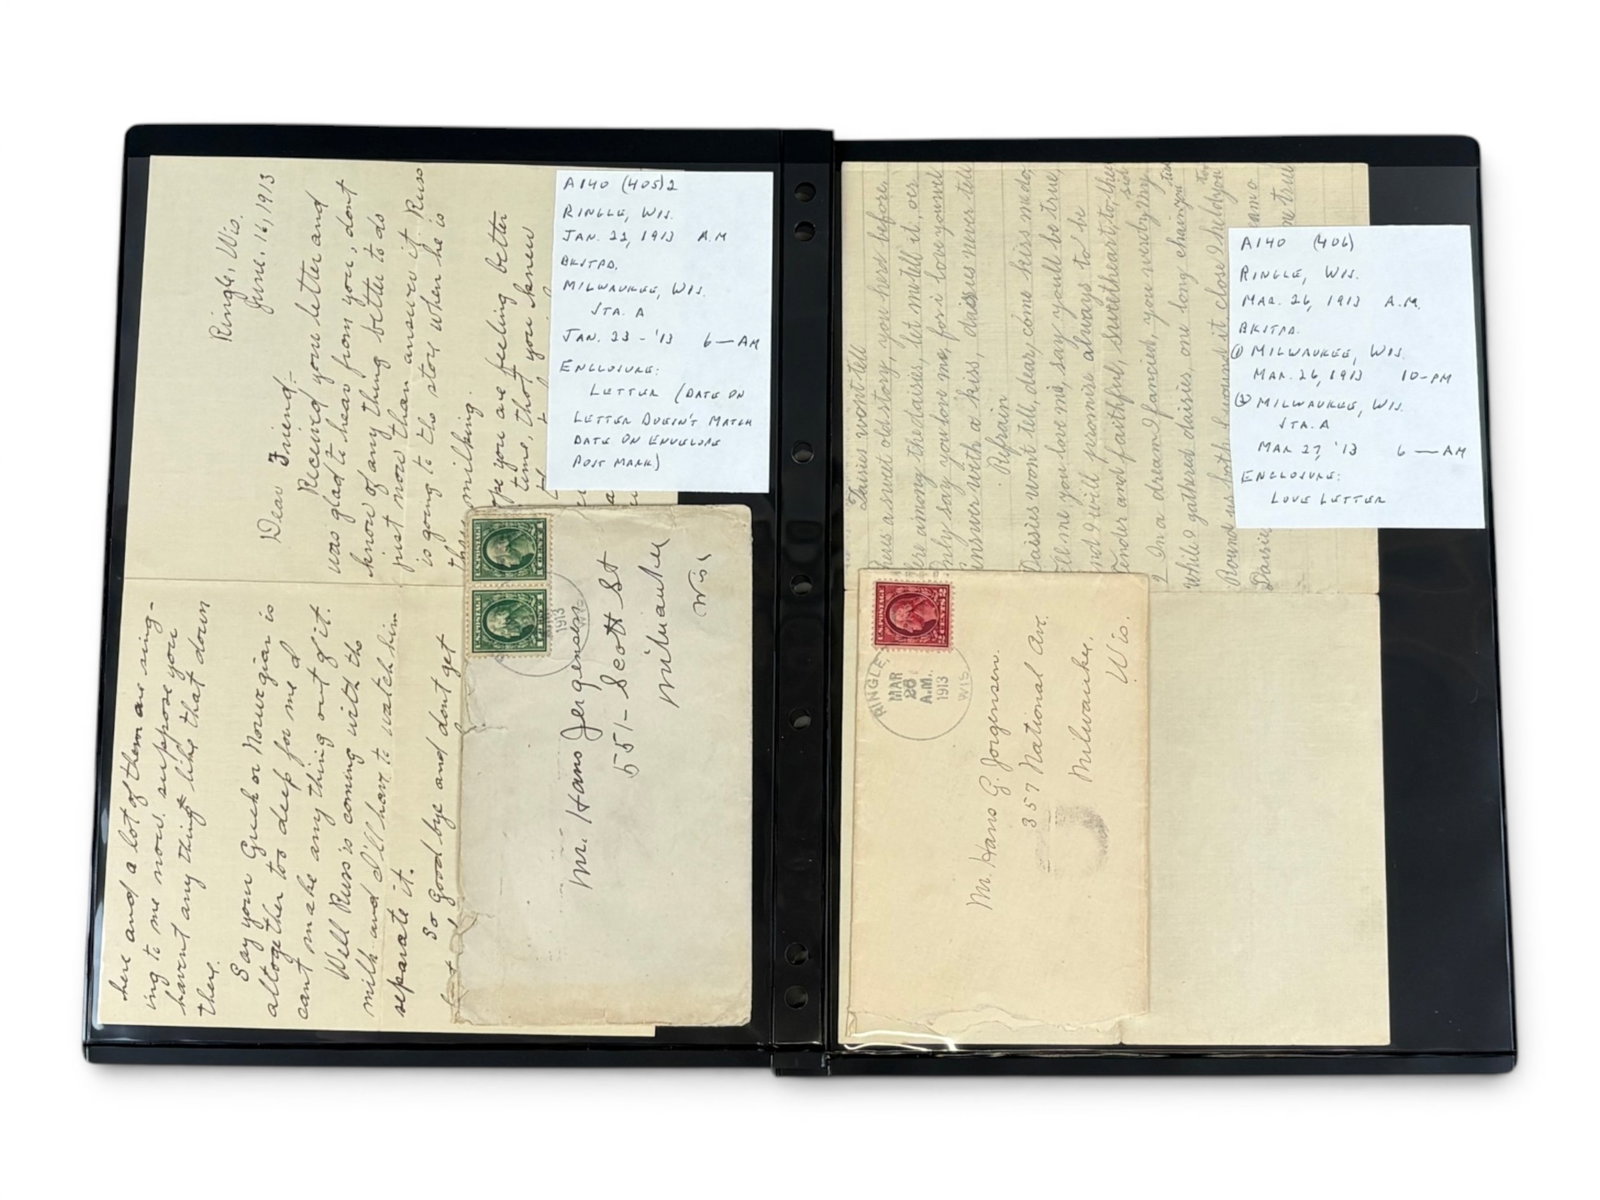 Ringle, Wis.
June. 16, 1913
Dear Friend.-
Received your letter and
was glad to hear from you, dont
know of any thing better to do
just now than answer it Russ
is going to the store when he is
thru milking.
ope you are feeling better
time, that you knew
here and a lot of them are sing-
ing to me now. suppose you
havent any thing like that down
there.
Say your Greek or Norwegian is
alltogether too deep for me I
cant make any thing out of it.
Well Russ is coming with the
milk and I'll have to watch him
separate it.
So good bye and dont get
A140 (405)2
RINGLE, WIS.
JAN. 22, 1913 A.M
BKSTPD.
MILWAUKEE, WIS.
STA. A
JAN. 23 - '13 6 — AM
ENCLOSURE:
LETTER (DATE ON
LETTER DOESN'T MATCH
DATE ON ENVELOPE
POST MARK)
U.S. POSTAGE
1 CENT 1
U.S. POSTAGE
1 CENT 1
1913
Mr. Hans Jorgensen
551- Scott St
Milwaukee
Wis.
Daisies wont tell
There's a sweet old story, you herd before,
Here among the daisies, let me tell it, o'er
Only say you love me, for i love you well
Answer with a kiss, daisies never tell
Refrain
Daisies wont tell, dear, come kiss me do,
Tell me you love me, say you'll be true,
And I will persomise always to be
Tender and faithful, sweetheart to thee
In a dream I fancied, you ware by my side
While I gathered daisies, one long chain
Round us both I wound it close I held you
Daisie
me true
A140 (406)
RINGLE, WIS.
MAR. 26, 1913 A.M.
BKSTPD.
① MILWAUKEE, WIS.
MAR. 26, 1913 10-PM
② MILWAUKEE, WIS.
STA. A
MAR 27, '13 6 — AM
ENCLOSURE:
LOVE LETTER
U.S. POSTAGE
2 CENTS 2
RINGLE,
MAR
26
A.M.
1913
WIS
Mr. Hans G. Jorgensen.
357 National Ave.
Milwaukee,
Wis.